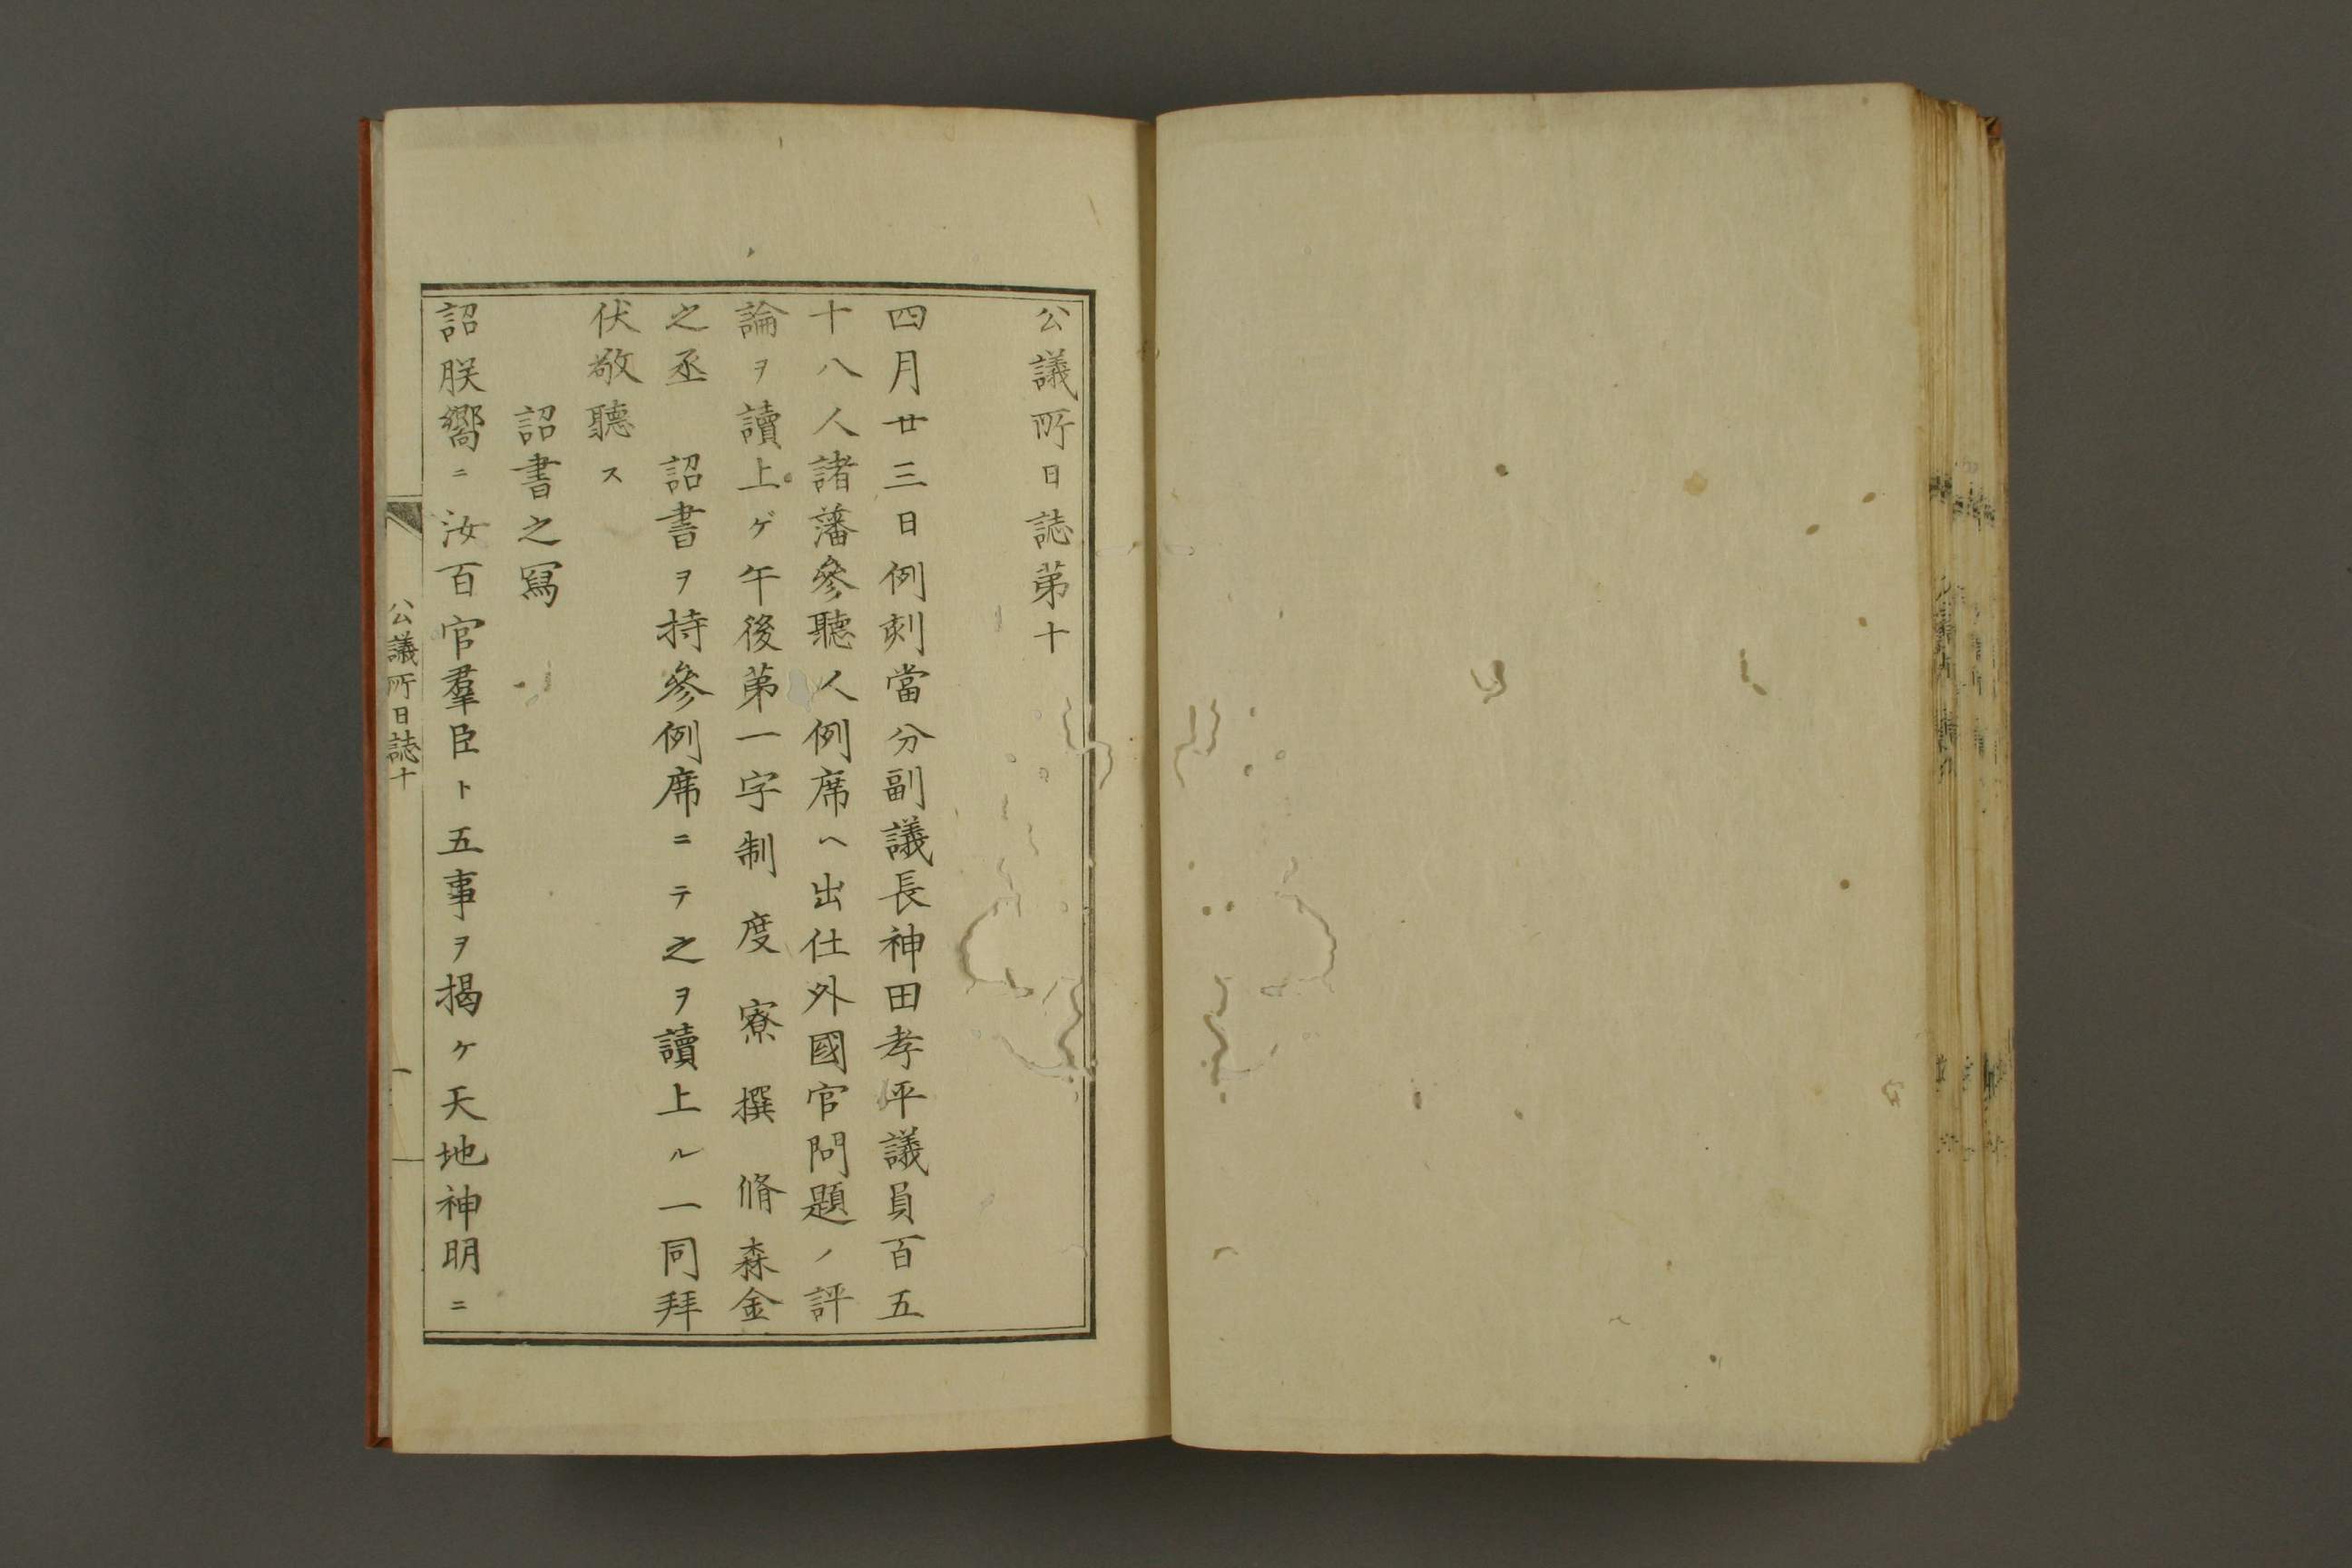 公議所日誌第十
四月廿三日例刻當分副議長神田孝平議員百五
十八人諸藩參聽人例席ヘ出仕外國官問題ノ評
論ヲ讀上ゲ午後第一字制度寮撰脩森金
之丞　詔書ヲ持參例席ニテ之ヲ讀上ル一同拜
伏敬聽ス
詔書之寫
詔朕嚮ニ汝百官羣臣ト五事ヲ揭ケ天地神明ニ
公議所日誌十
一